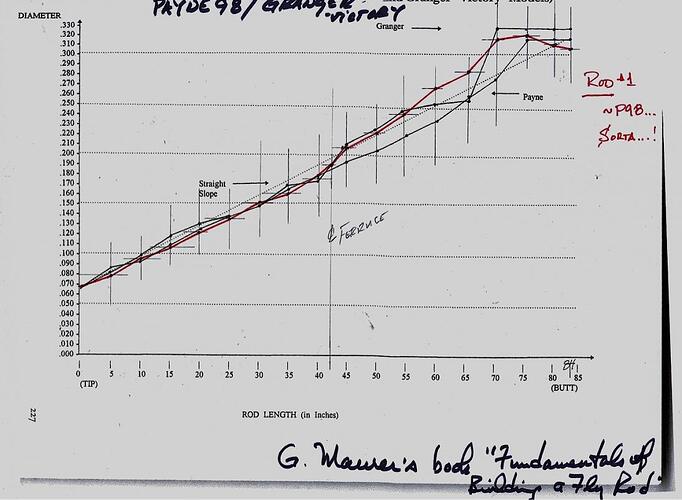 PAYNE 98/ GRANGER-
VICTORY
and Granger Victory Models)
DIAMETER
Granger
.330
.320
.310
.300
.290
.280
.270
.260
.250
.240
.230
.220
.210
.200
.190
.180
.170
.160
.150
.140
.130
.120
.110
.100
.090
.080
.070
.060
.050
.040
.030
.020
.010
.000
Payne
ROD #1
~P98...
SORTA...!
Straight
Slope
℄ FERRULE
0 5 10 15 20 25 30 35 40 45 50 55 60 65 70 75 80 84 85
(TIP) (BUTT)
ROD LENGTH (in Inches)
227
G. Maurer's book "Fundamentals of
Building a Fly Rod"